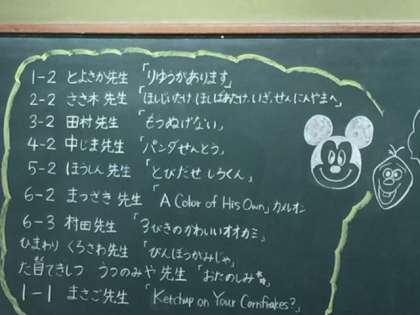 1-2 とよさか先生 「りゆうがあります」
2-2 ささ木先生 「ほしじいたけ ほしばあたけ、いざ、せんにんやまへ」
3-2 田村先生 「もうぬげない」
4-2 中じま先生 「パンダせんとう」
5-2 ほうしん先生 「とびだせ しろくん」
6-2 まつざき先生 「A Color of His Own」カメレオン
6-3 村田先生 「3びきのかわいいオオカミ」
ひまわり くろさわ先生 「びんぼうがみじゃ」
た目てきしつ うつのみや先生 「おたのしみ」
1-1 まさご先生 「Ketchup on Your Cornflakes?」